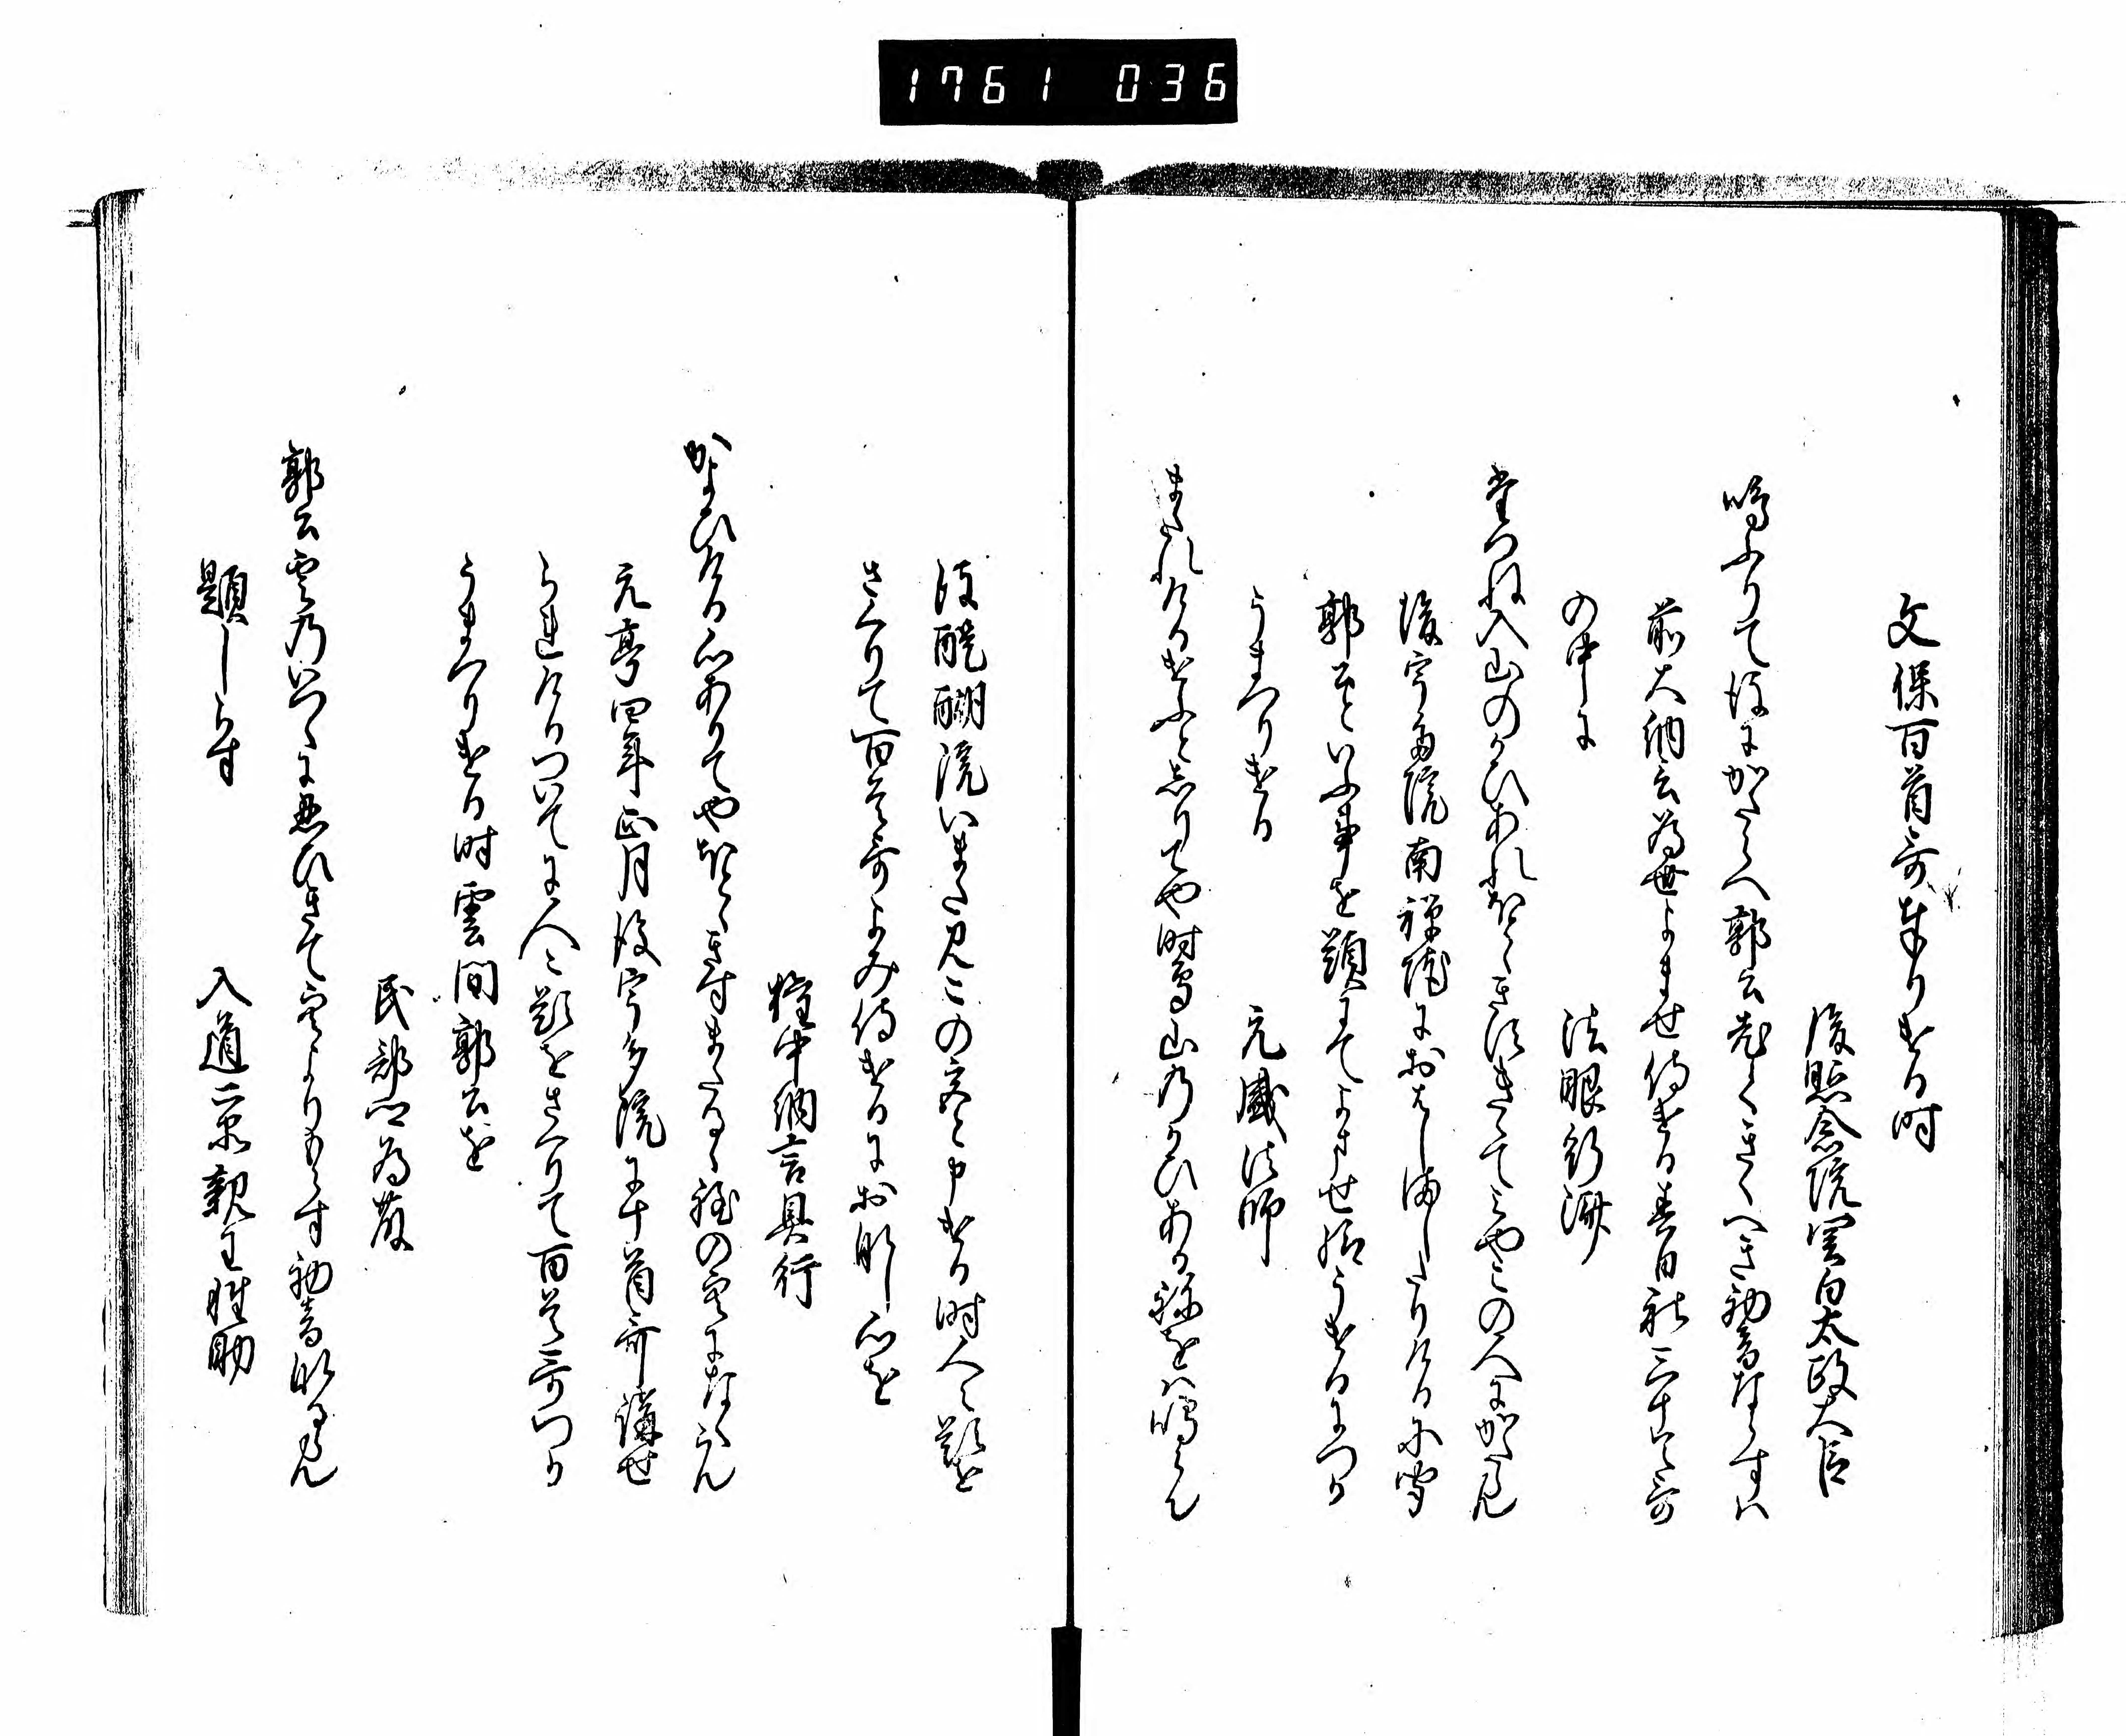 1761 036
文保百首哥奉りける時
後照念院関白太政大臣
鳴ふりて後にかたらへ郭公先つきくへき初音ならすは
前大納言為世よませ侍ける春日社三十首哥
の中に
法眼行済
山のかひあれほとゝきす
後宇多院南禅院におはしましたりける
郭公といふ事を題にてよませ給うけるにつか
うまつりける
元盛法師
またれけるけふと志りてや時鳥山のかひある音をは鳴らん
後醍醐院いまたみこの宮と申ける時人々題を
さくりて百首哥よみ侍けるにおなし心を
権中納言具行
かよひける心ありてやほとゝきすまたるゝ夜の空になくらん
元亨四年正月後宇多院に十首哥講せ
られけるついてに人々題をさくりて百首哥つか
うまつりける時雲間郭公を
民部卿為藤
郭公雲のいつくに忍ひきて空よりもらす初音なるらん
題しらす
入道二品親王性助